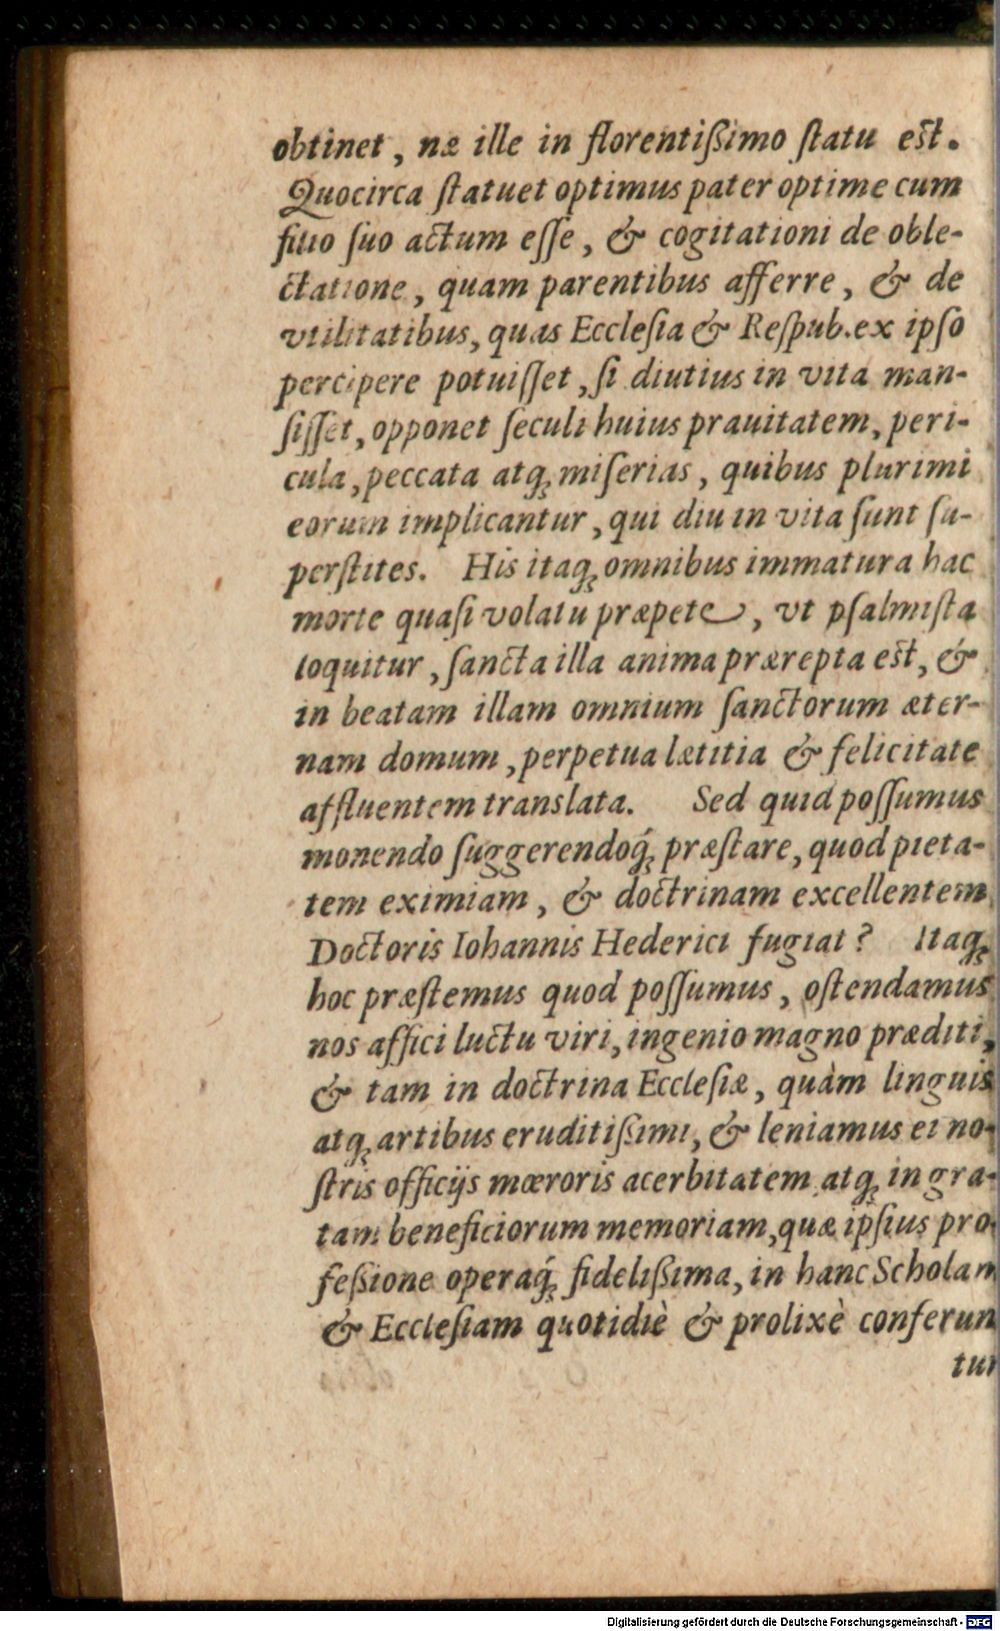 obtinet, næ ille in florentißimo ſtatu eſt.
Quocirca ſtatuet optimus pater optime cum
filio ſuo actum eſſe, & cogitationi de oble-
ctatione, quam parentibus afferre, & de
vtilitatibus, quas Eccleſia & Reſpub. ex ipſo
percipere potuiſſet, ſi diutius in vita man-
ſiſſet, opponet ſeculi huius prauitatem, peri-
cula, peccata atq; miſerias, quibus plurimi
eorum implicantur, qui diu in vita ſunt ſu-
perſtites. His itaq; omnibus immatura hac
morte quaſi volatu præpete, vt pſalmiſta
loquitur, ſancta illa anima prærepta eſt, &
in beatam illam omnium ſanctorum æter-
nam domum, perpetua lætitia & felicitate
affluentem translata. Sed quid poſſumus
monendo ſuggerendoq́; præſtare, quod pieta-
tem eximiam, & doctrinam excellentem
Doctoris Iohannis Hederici fugiat? Itaq;
hoc præſtemus quod poſſumus, oſtendamus
nos affici luctu viri, ingenio magno præditi,
& tam in doctrina Eccleſiæ, quàm linguis
atq; artibus eruditißimi, & leniamus ei no-
ſtris officijs mœroris acerbitatem atq; in gra-
tam beneficiorum memoriam, quæ ipſius pro-
feßione operaq́; fidelißima, in hanc Scholam
& Eccleſiam quotidiè & prolixè conferun
tur
Digitalisierung gefördert durch die Deutsche Forschungsgemeinschaft - DFG